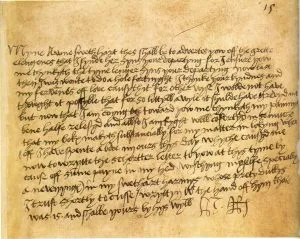 15
Myne awne swethart thes shall be to advertes you off the grete
elengenes that I fynde her syns your departyng for I ensure you
me thynkyth the tyme lenger syns your departyng now last
then I was wonte to do a hole fortnyght I thynke your kyndnes and
my fervence off love causyth it for other wyse I wolde not have
thought it possyble that for so littyll a wyle it shulde have grevyd me
but now that I am comyng toward you me thynkyth my paynys
bene halfe relesyd and also I am ryght well comfortyd
that my boke makyth substancially for my matter in
I have spente above ours thys day whyche causyd me
now to wrytte the schortter letter to you at thys tyme by
cause off sume payne in my hed wysshyng my selfe specially
an evenyng in my swethart harmys whose prety dukkys
I truste shortly to cusse wryttyn with the hand off hym that
was is and shalbe yours by hys wyll